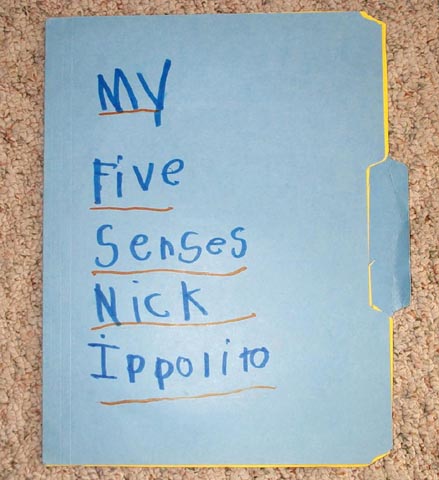 My
Five
Senses
Nick
Ippolito